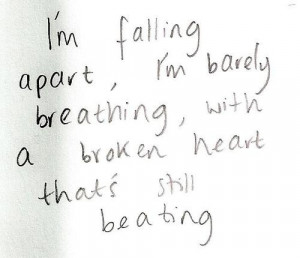 I'm falling
apart, I'm barely
breathing, with
a broken heart
that's still
beating